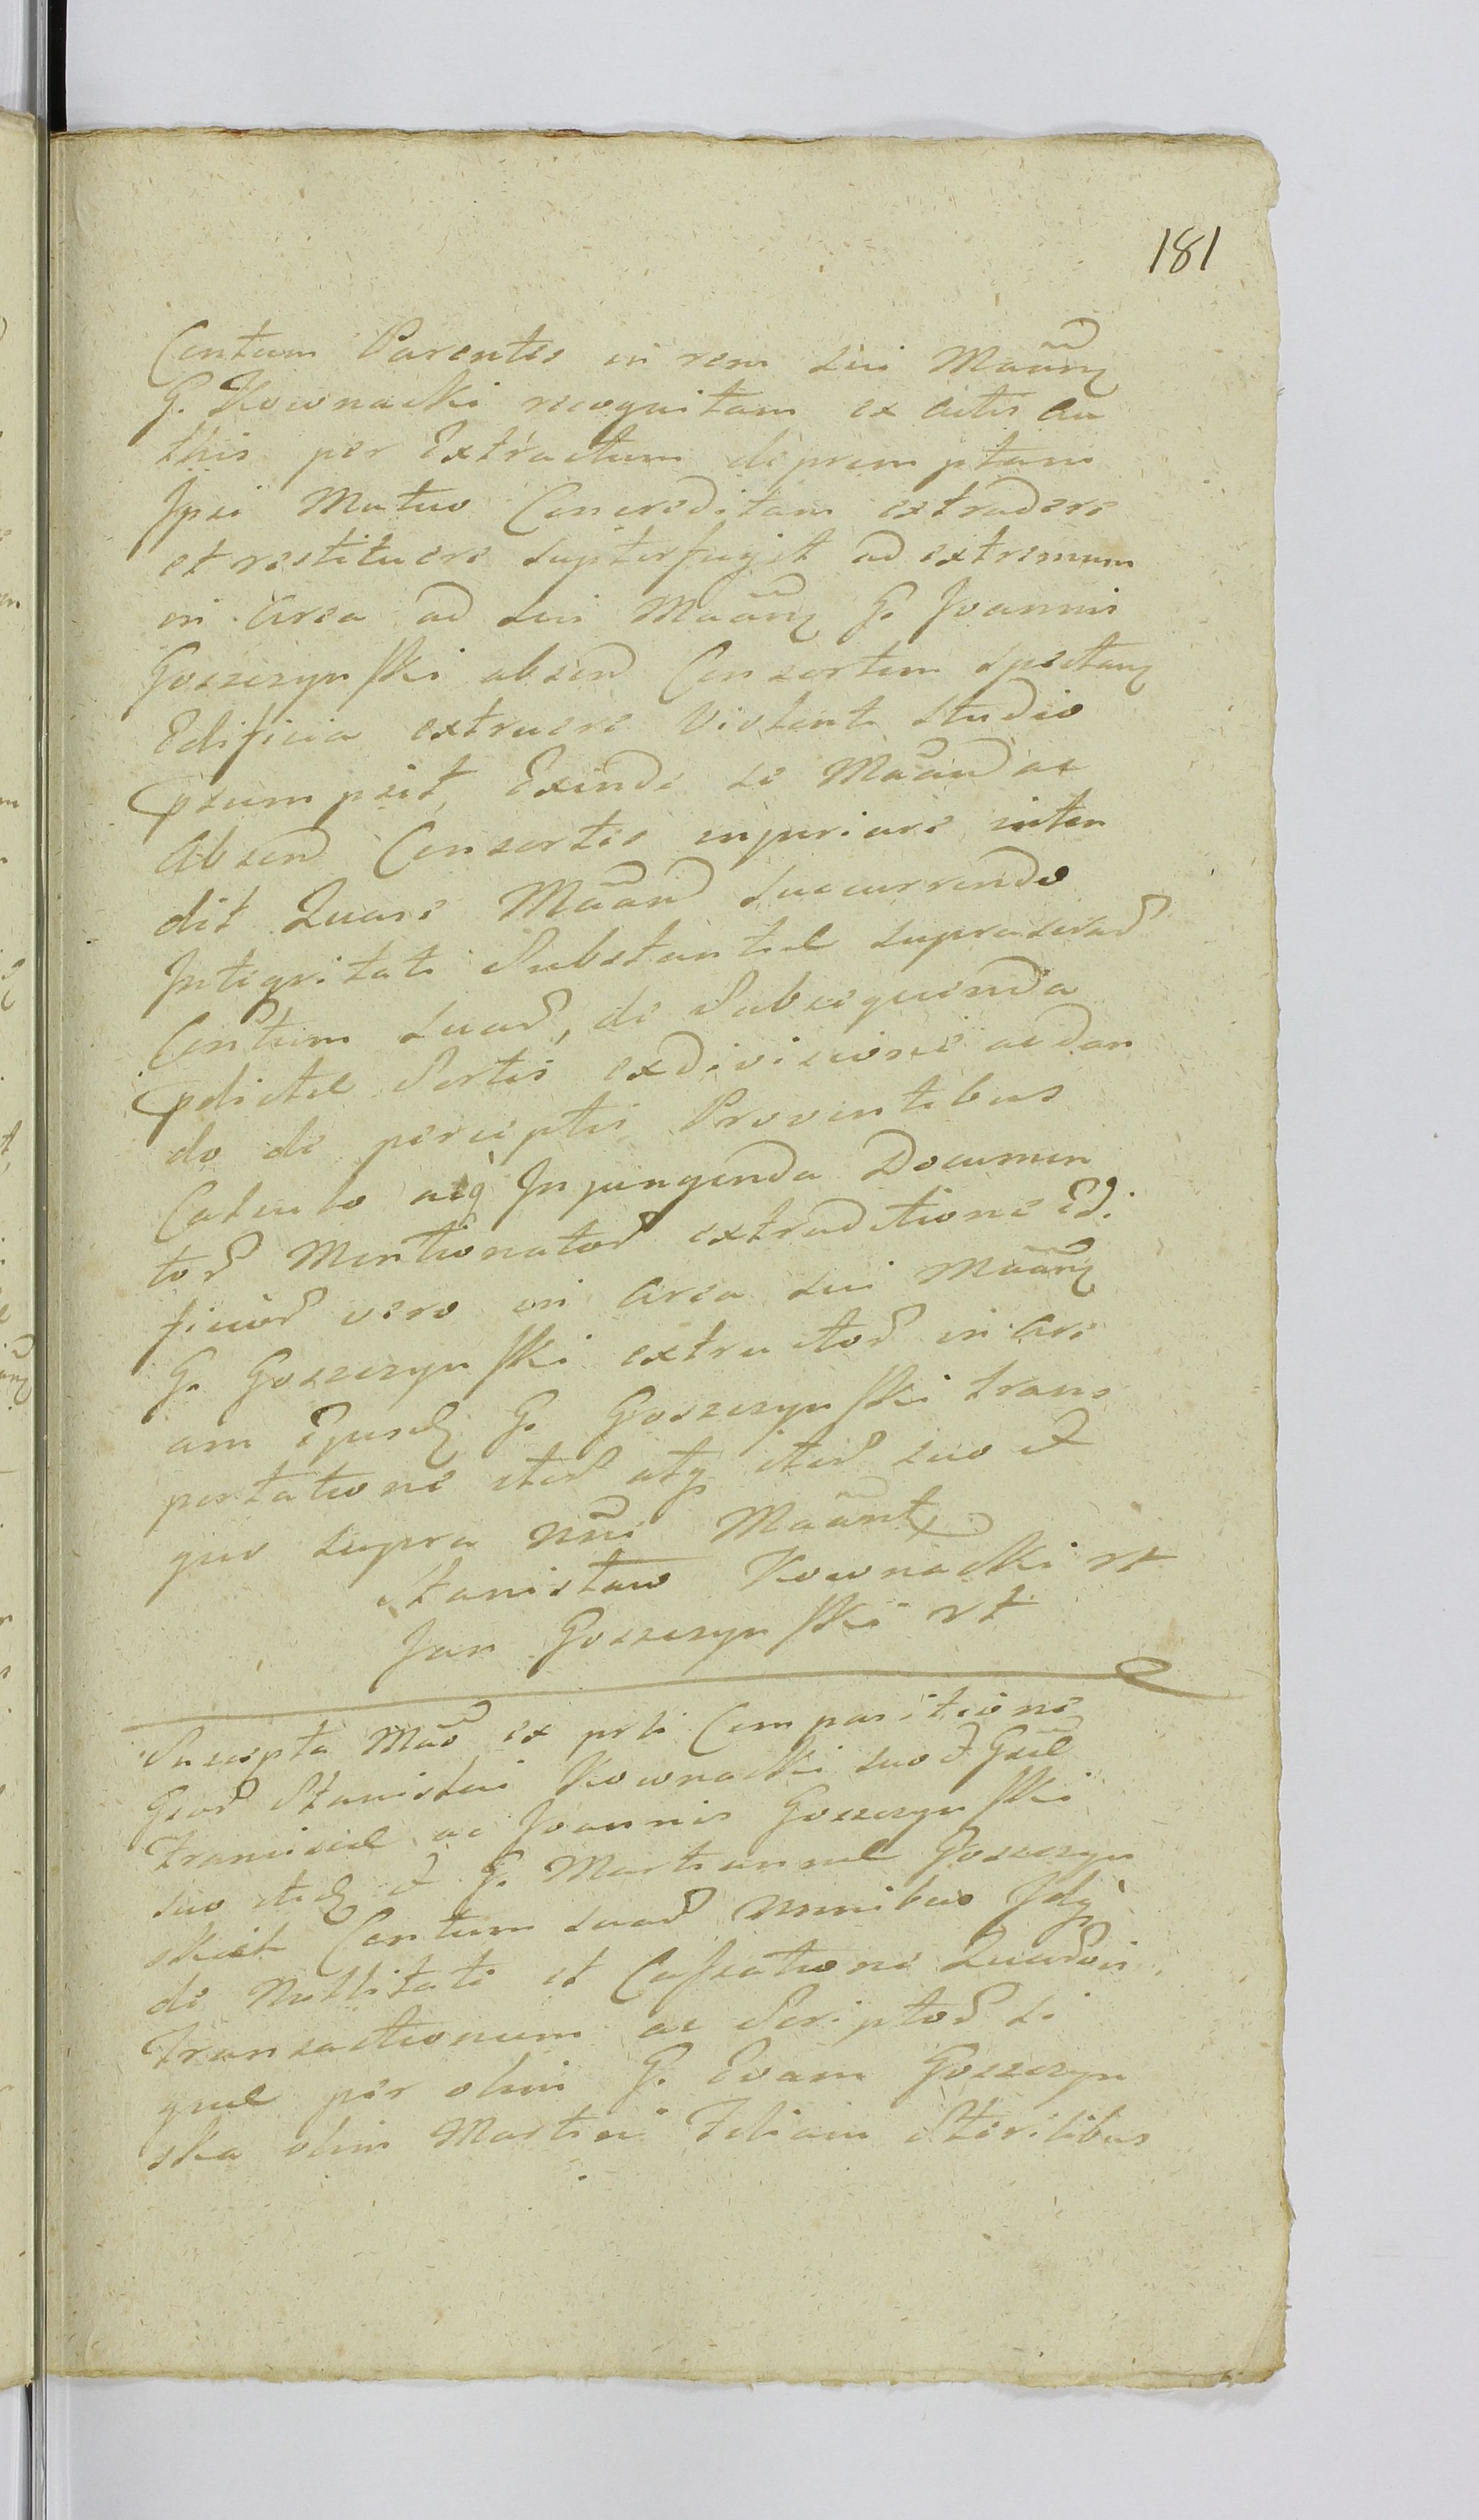 181
Centum Parentis in rem sui Maãng
G. Kownacki recognitam ex actis au
this per Extractum depremptam
Ipsi Mutuo Concreditam extradere
et restituere supterfugit ad extremum
in area ad sui Maãng G. Joannis
Goszczynski absen Consortem spectang
Edificia extruere Violento studio
psumpsit, Exinde se Maãnd ac
Absen Consortes injuriare inten
dit Quare Maãnd succurrendo
Integritati Substantiæ suprascrad
Centum suad, de Subsequenda
pdictæ Sortis exdivisione ac dan
do de perceptis Proventibus
Calculo acq Injungenda Documen
tor Mentionator extraditione Edi
ficior vero in area sui Maãng
G. Goszczynski extructor in are
am Ejusd G. Goszczynski trans
portatione
quo supra nni Maãnt
Stanisław Kownacki
Jan Goszczynski
Suscepta Mão ex Comparitione
Stanislai Kownacki suo et
Franciscæ ac Joannis Goszczynski
suo et G. Mariannæ Goszczyn
skich Centum suad nnibus Idq
de Nullitate et Cassatione
Transactionum ac Scriptor si
quæ per olim G. Evam Goszczyn
ska olim Martini Filiam Sterilibus